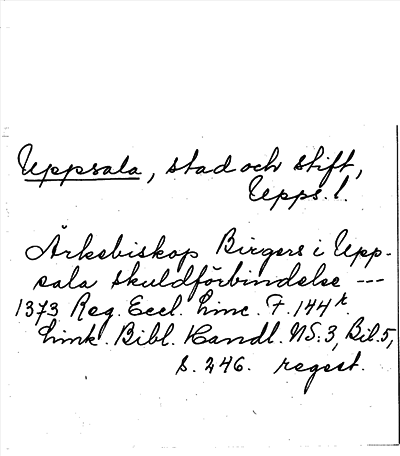 Uppsala, stad och stift,
Upps. l.
Ärkebiskop Birgers i Upp-
sala skuldförbindelse ---
1373 Reg. Eccl. Linc. F. 144 r.
Link. Bibl. Handl. NS. 3, Bil. 5,
S. 246. regest.